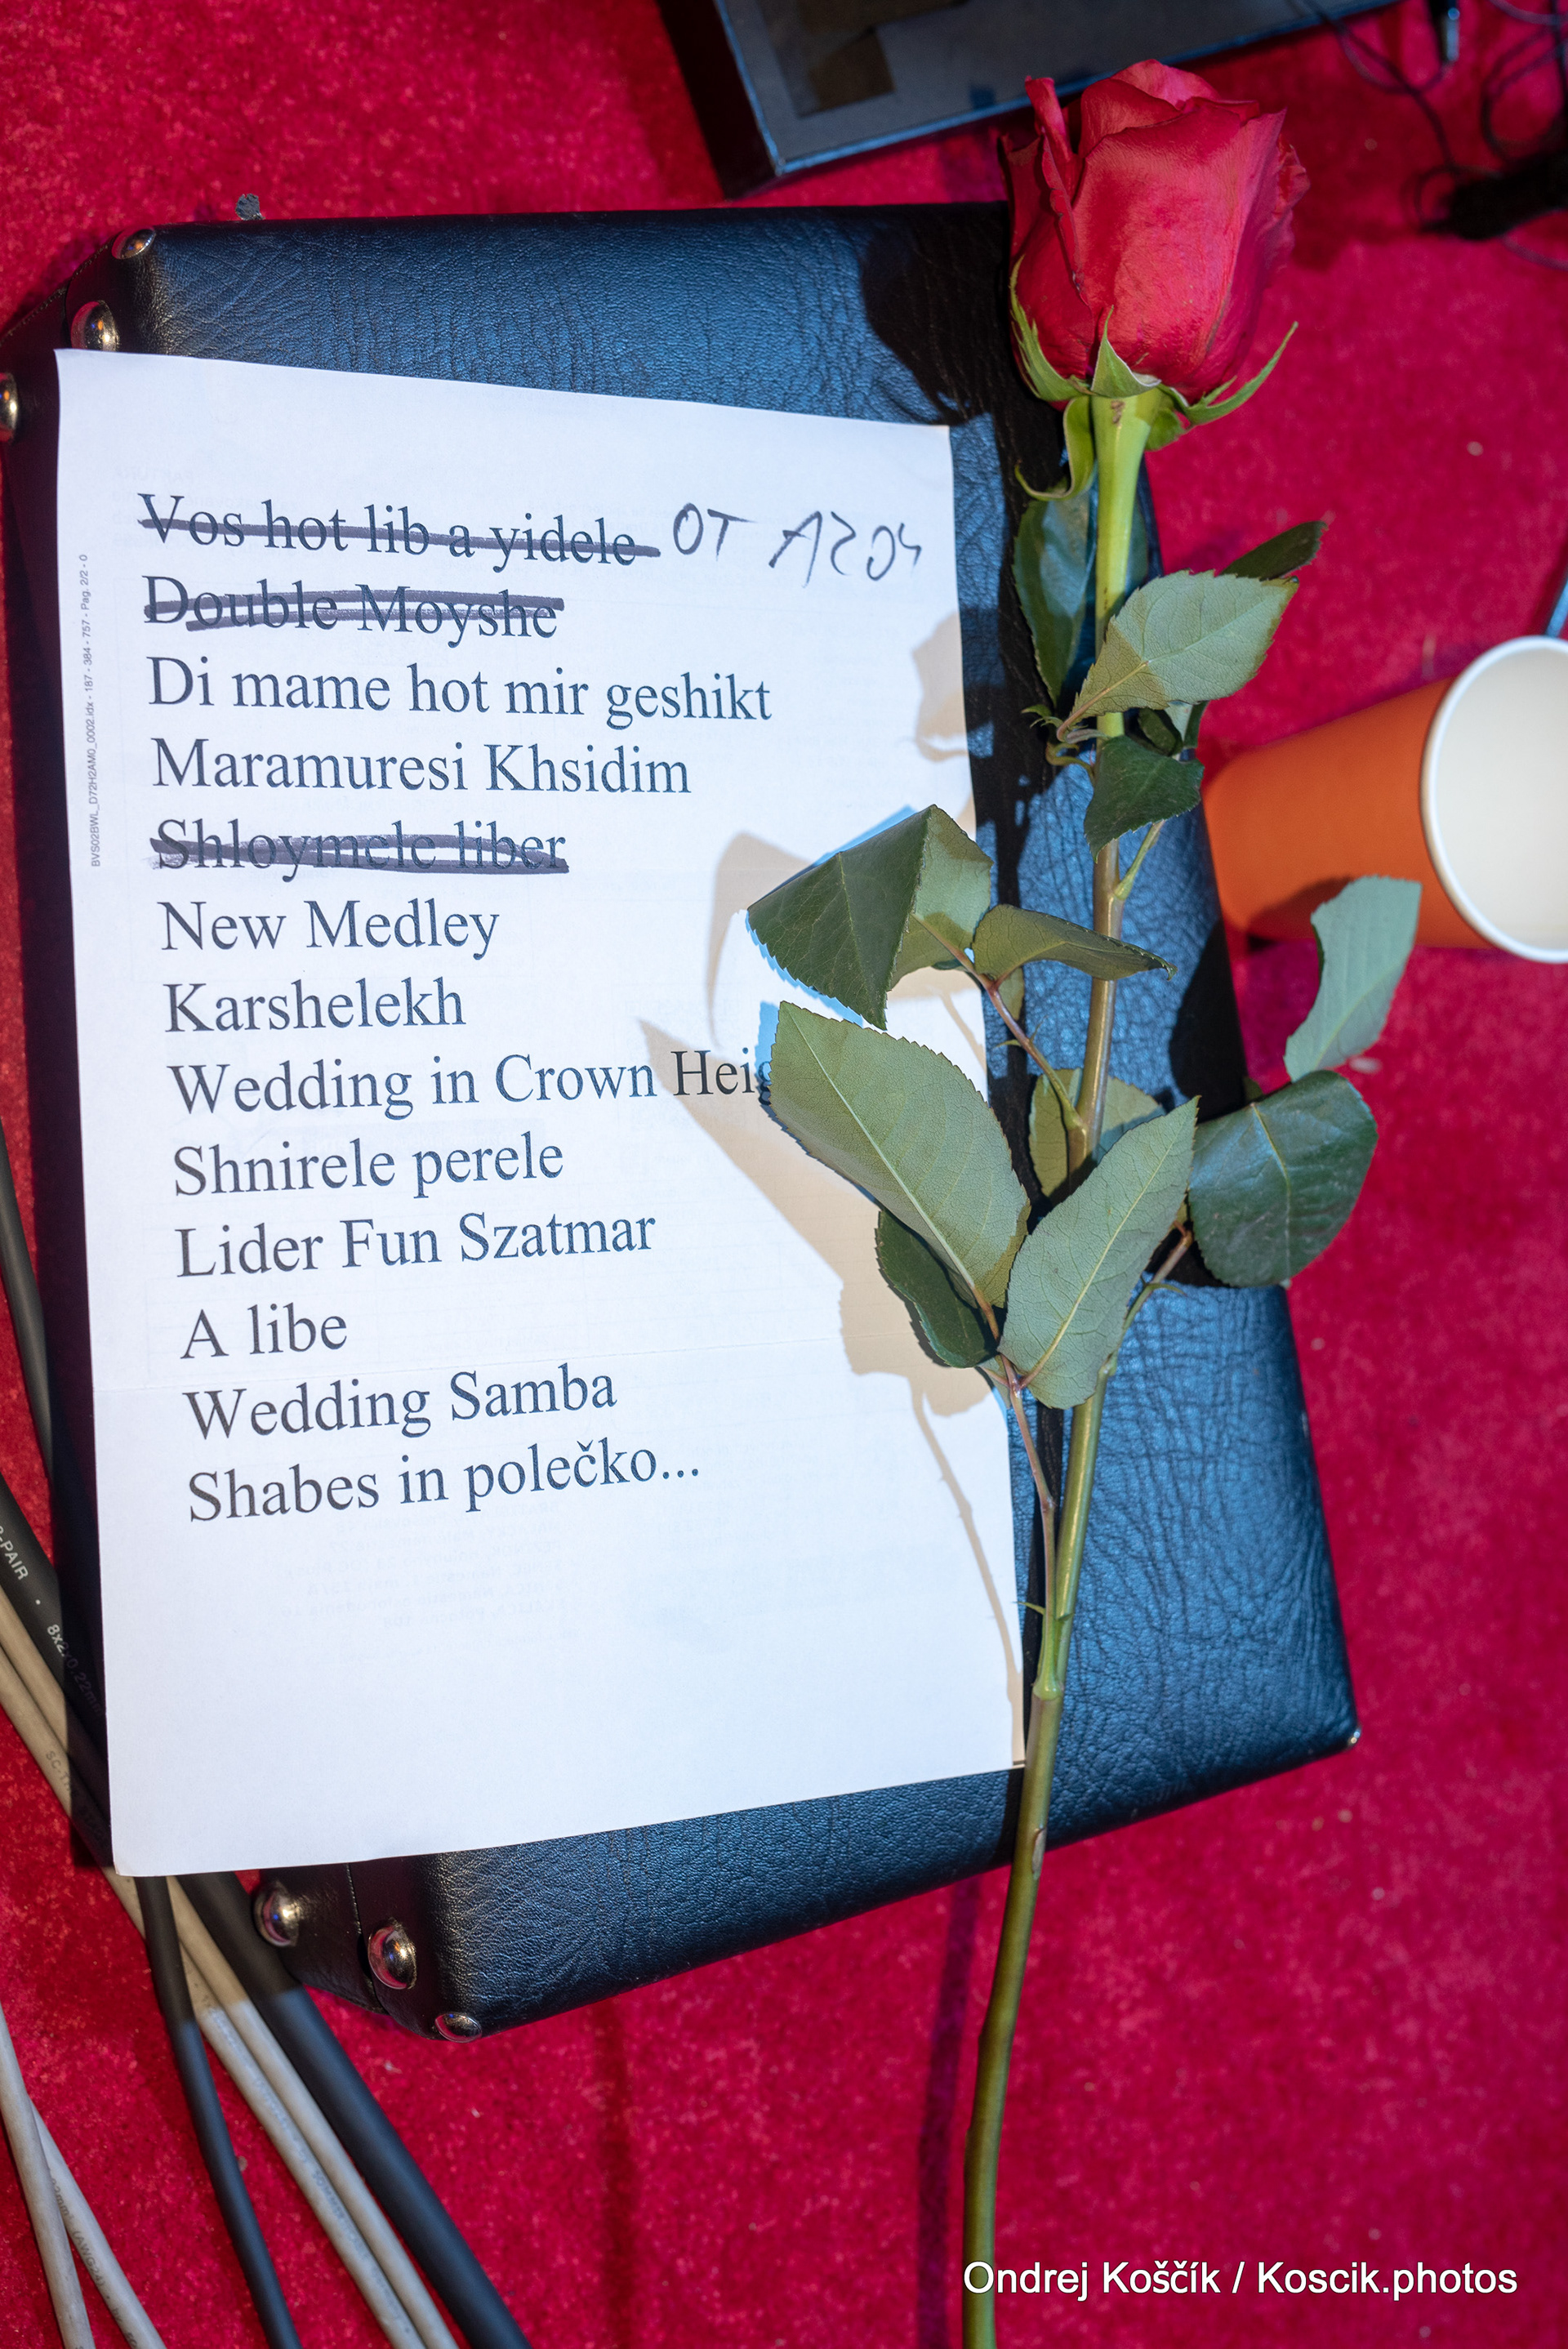 Vos hot lib a yidele OT AZOY
Double Moyshe
Di mame hot mir geshikt
Maramuresi Khsidim
Shloymele liber
New Medley
Karshelekh
Wedding in Crown Heig
Shnirele perele
Lider Fun Szatmar
A libe
Wedding Samba
Shabes in polečko...
BVS02BWL_D72H2AM0_0002.idx - 187 - 384 - 757 - Pag. 2/2 - 0
Ondrej Koščík / Koscik.photos